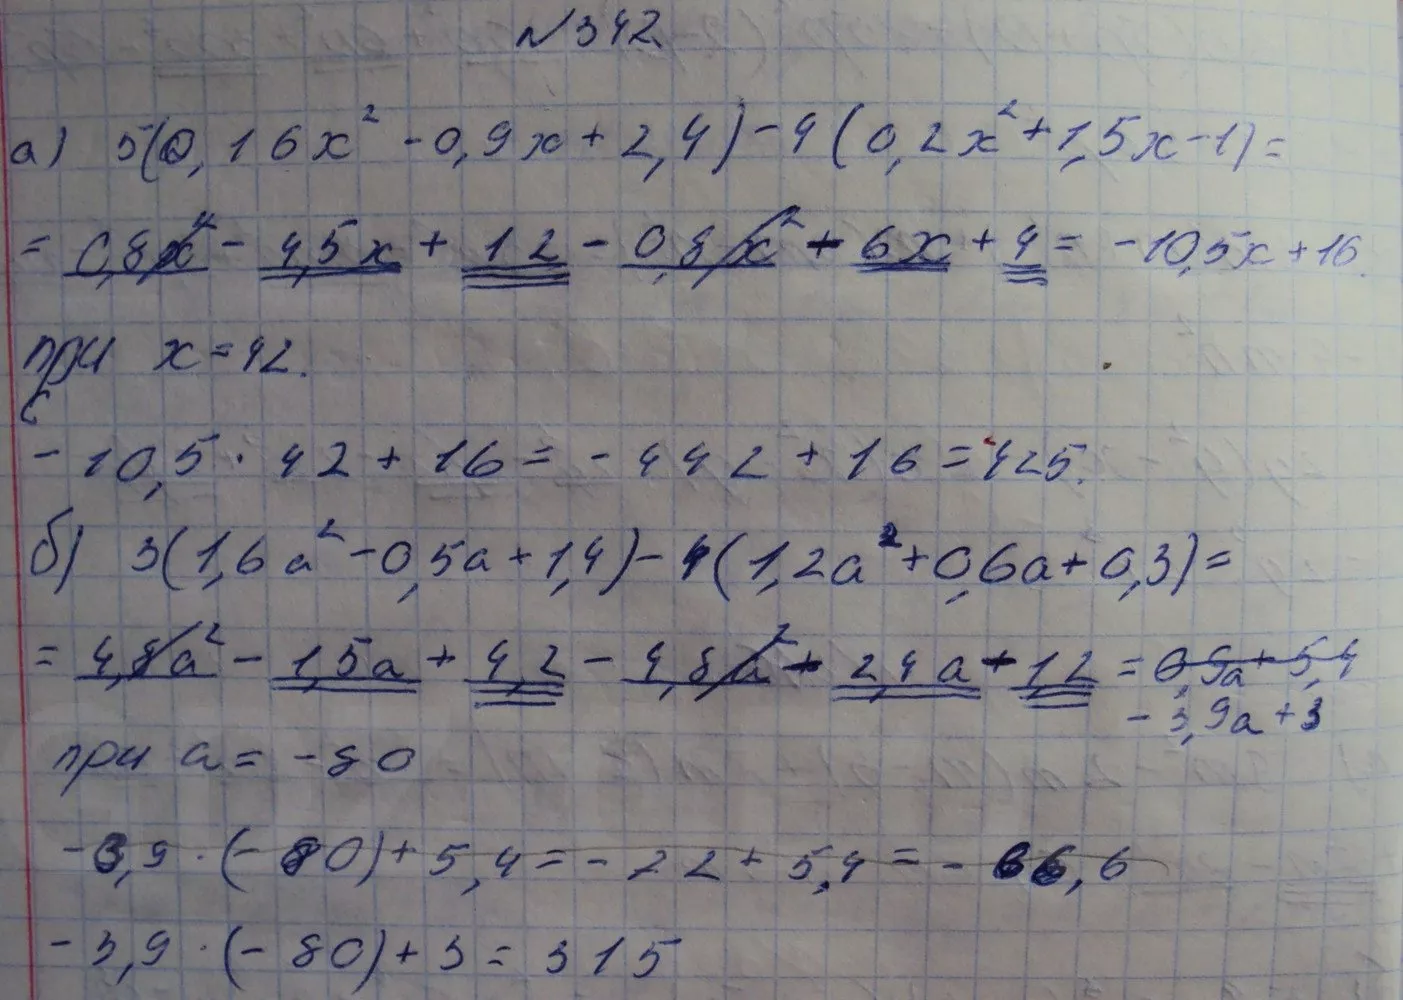 №342.
а) 5(0,16x² - 0,9x + 2,4) - 4(0,2x² + 1,5x - 1) =
= 0,8x² - 4,5x + 12 - 0,8x² - 6x + 4 = -10,5x + 16.
при x = 42.
-10,5 · 42 + 16 = -442 + 16 = 425.
б) 3(1,6a² - 0,5a + 1,4) - 4(1,2a² + 0,6a + 0,3) =
= 4,8a² - 1,5a + 4,2 - 4,8a² - 2,4a - 1,2 = 0,9a + 5,4
-3,9a + 3
при a = -80
-3,9 · (-80) + 5,4 = -22 + 5,4 = -66,6
-3,9 · (-80) + 3 = 315